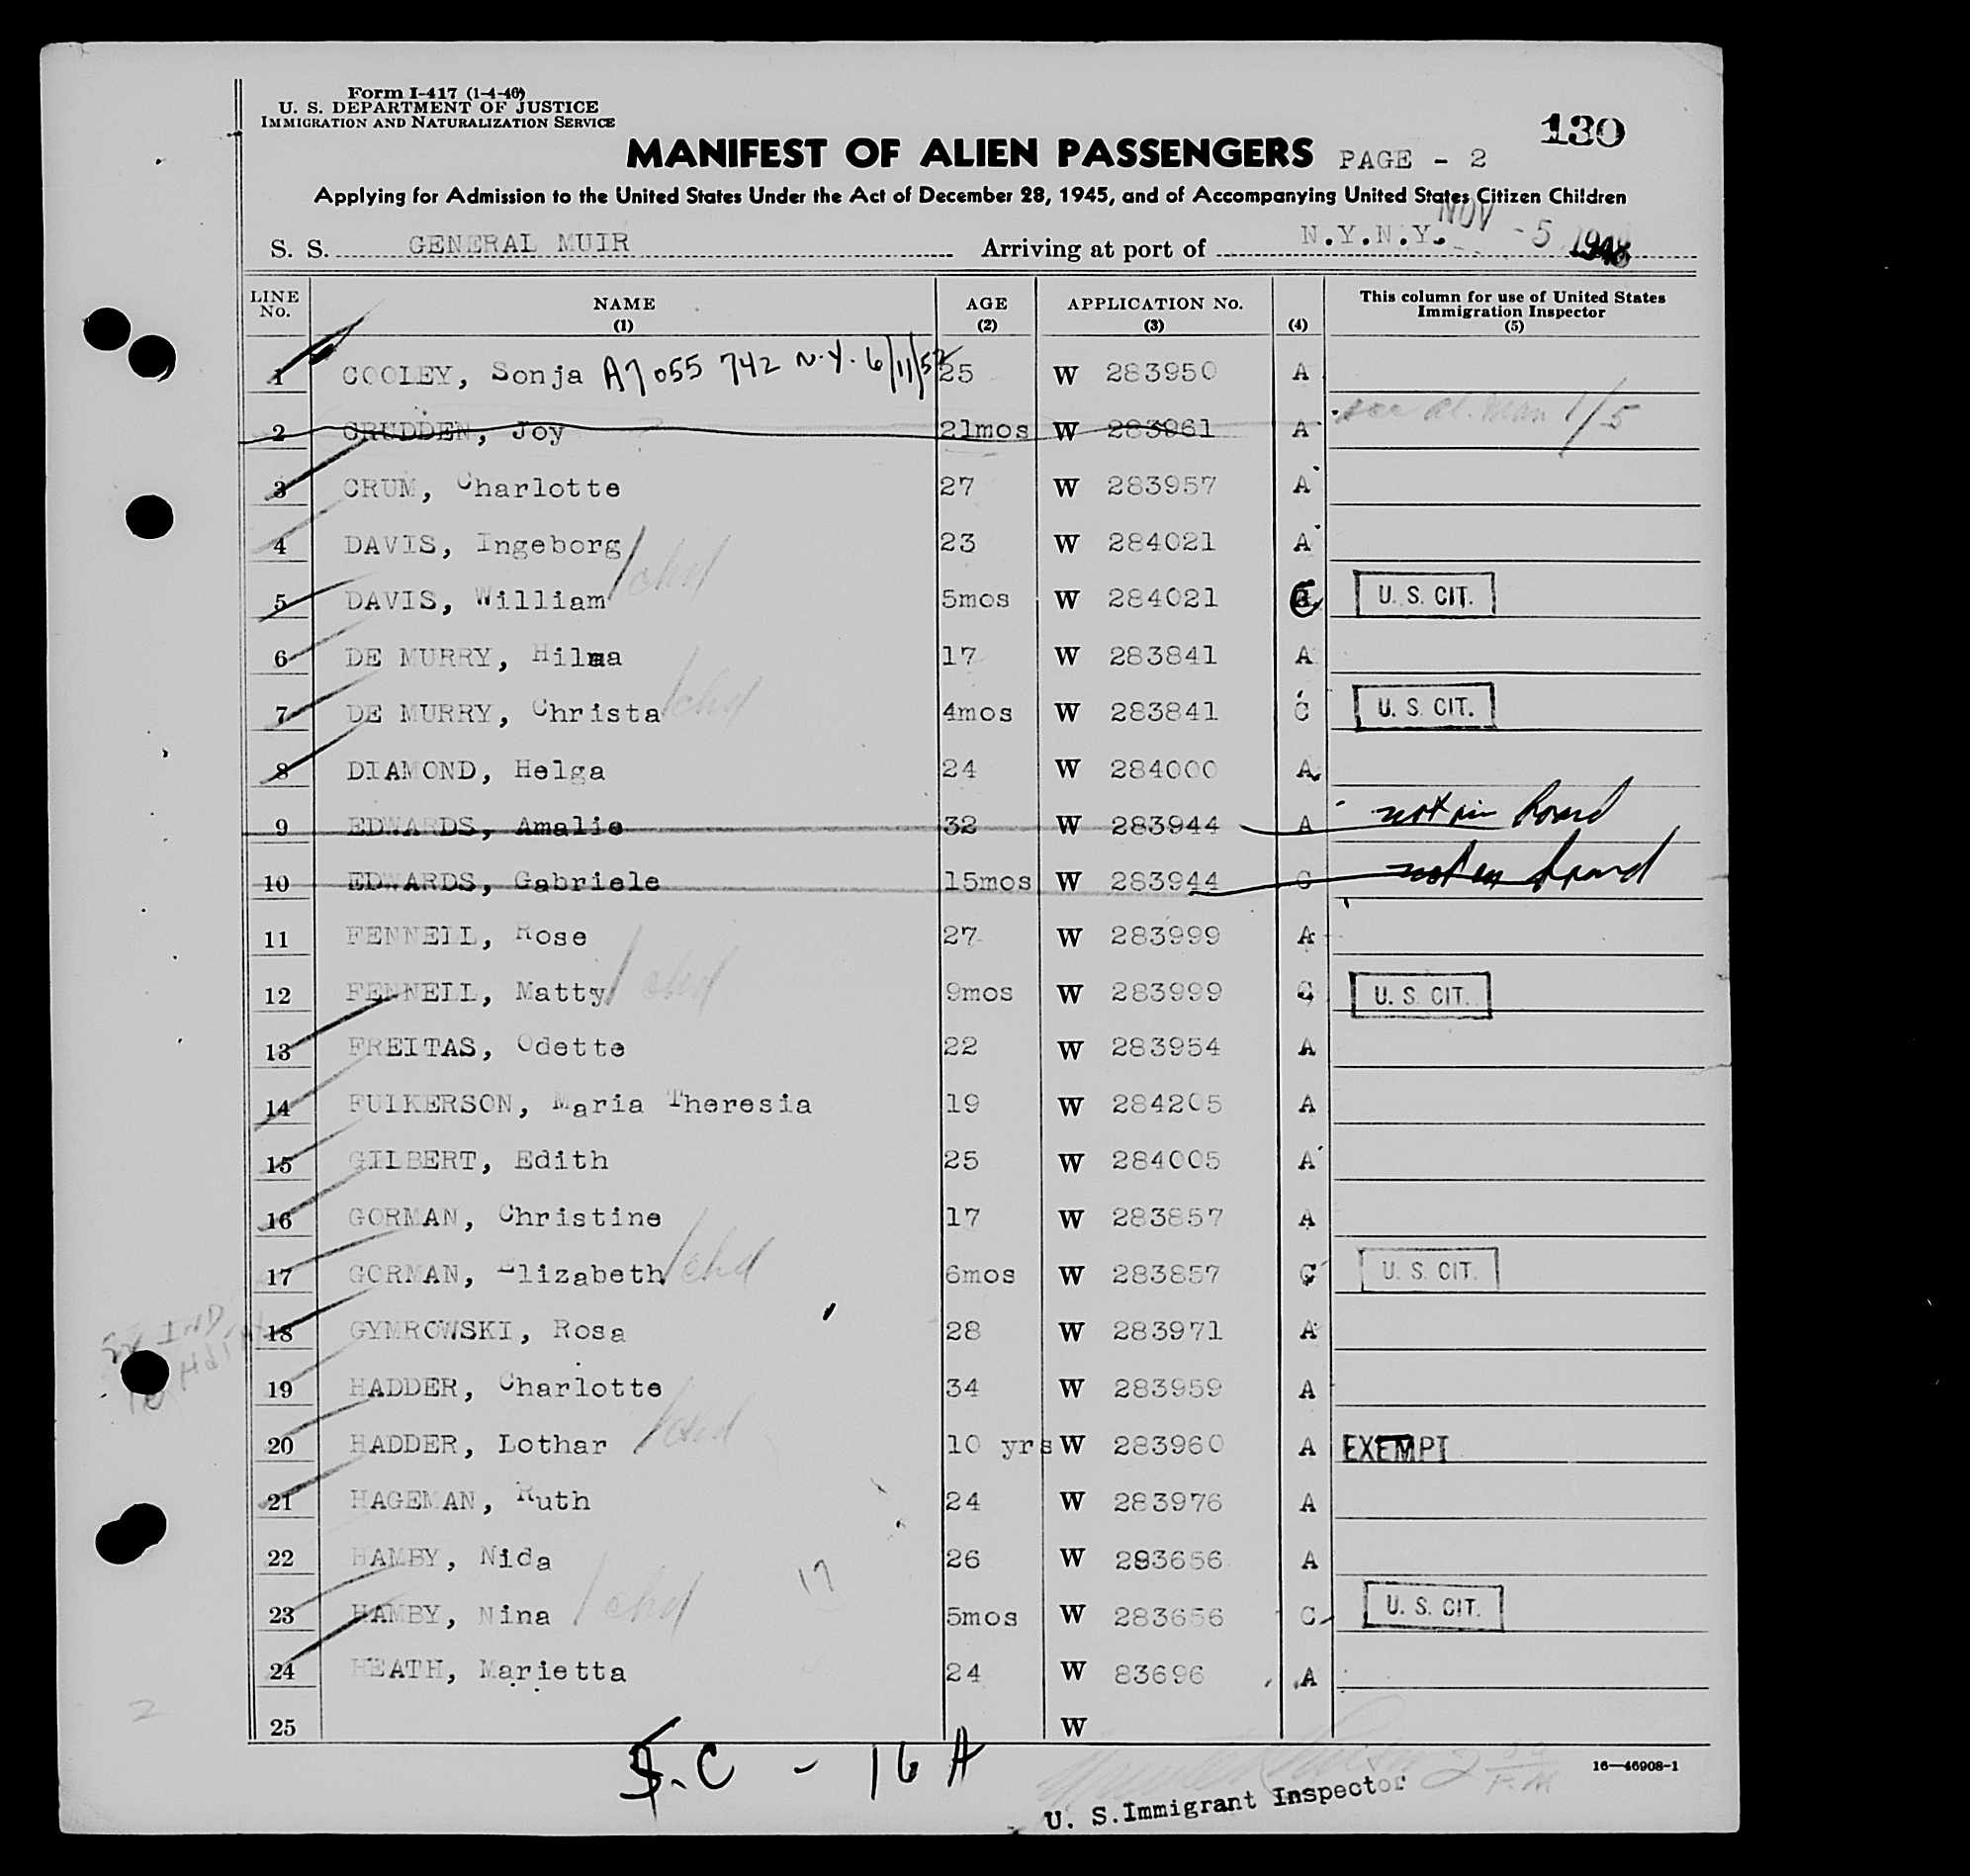 Form I-417 (1-4-46)
U. S. DEPARTMENT OF JUSTICE
IMMIGRATION AND NATURALIZATION SERVICE
130
MANIFEST OF ALIEN PASSENGERS PAGE - 2
Applying for Admission to the United States Under the Act of December 28, 1945, and of Accompanying United States Citizen Children
S. S. GENERAL MUIR Arriving at port of N.Y.N.Y. NOV - 5 1948
LINE No. NAME (1) AGE (2) APPLICATION No. (3) (4) This column for use of United States Immigration Inspector (5)
1 COOLEY, Sonja A7055 742 N.Y. 6/11/52 25 W 283950 A
2 CRUDDEN, Joy 21mos W 283961 A see al. man 1/5
3 CRUM, Charlotte 27 W 283957 A
4 DAVIS, Ingeborg 23 W 284021 A
5 DAVIS, William / chd 5mos W 284021 C U. S. CIT.
6 DE MURRY, Hilma 17 W 283841 A
7 DE MURRY, Christa / chd 4mos W 283841 C U. S. CIT.
8 DIAMOND, Helga 24 W 284000 A
9 EDWARDS, Amalie 32 W 283944 A not on board
10 EDWARDS, Gabriele 15mos W 283944 C not on board
11 FENNELL, Rose 27 W 283999 A
12 FENNELL, Matty / chd 9mos W 283999 C U. S. CIT.
13 FREITAS, Odette 22 W 283954 A
14 FULKERSON, Maria Theresia 19 W 284205 A
15 GILBERT, Edith 25 W 284005 A
16 GORMAN, Christine 17 W 283857 A
17 GORMAN, Elizabeth / chd 6mos W 283857 C U. S. CIT.
18 GYMROWSKI, Rosa 28 W 283971 A
19 HADDER, Charlotte 34 W 283959 A
20 HADDER, Lothar / chd 10 yrs W 283960 A EXEMPT
21 HAGEMAN, Ruth 24 W 283976 A
22 HAMBY, Nida 26 W 283656 A
17
23 HAMBY, Nina / chd 5mos W 283656 C U. S. CIT.
24 HEATH, Marietta 24 W 83696 A
2
25 W
5.C - 16 A
16—46908-1
U. S. Immigrant Inspector